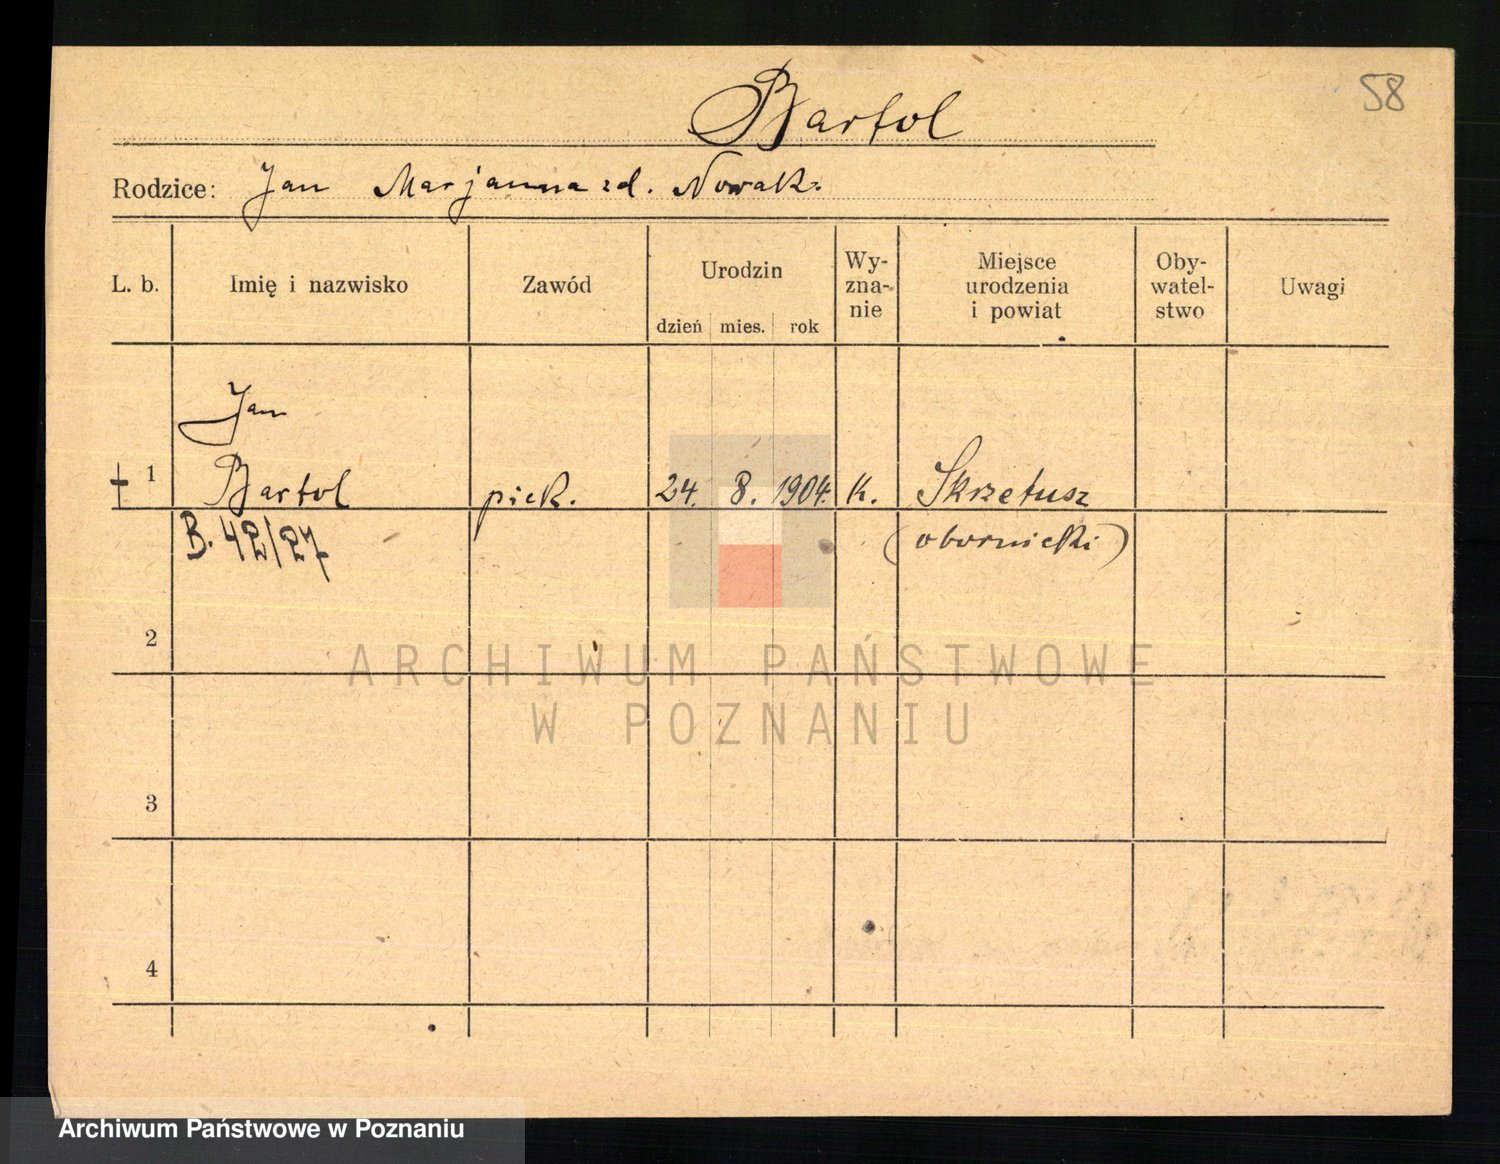 58
Bartol
Rodzice: Jan Marjanna zd. Nowak.
L. b. Imię i nazwisko Zawód Urodzin dzień mies. rok Wy-zna-nie Miejsce urodzenia i powiat Oby-watel-stwo Uwagi
Jan
+ 1 Bartol piek. 24. 8. 1904. k. Skrzetusz
B. 42/27 (obornicki)
2
3
4
ARCHIWUM PAŃSTWOWE
W POZNANIU
Archiwum Państwowe w Poznaniu